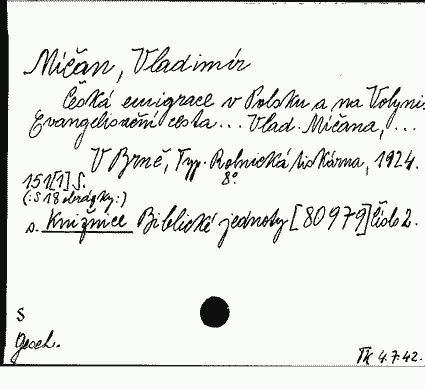 Míčan, Vladimír
Česká emigrace v Polsku a na Volyni.
Evangelisační cesta... Vlad. Míčana,...
V Brně, Typ. Rolnická tiskárna, 1924.
8°.
151[1] S.
(:S 18 obrázky:)
s. Knižnice Biblické jednoty [80979] číslo 2.
S
Gesch.
TK 4.7.42.